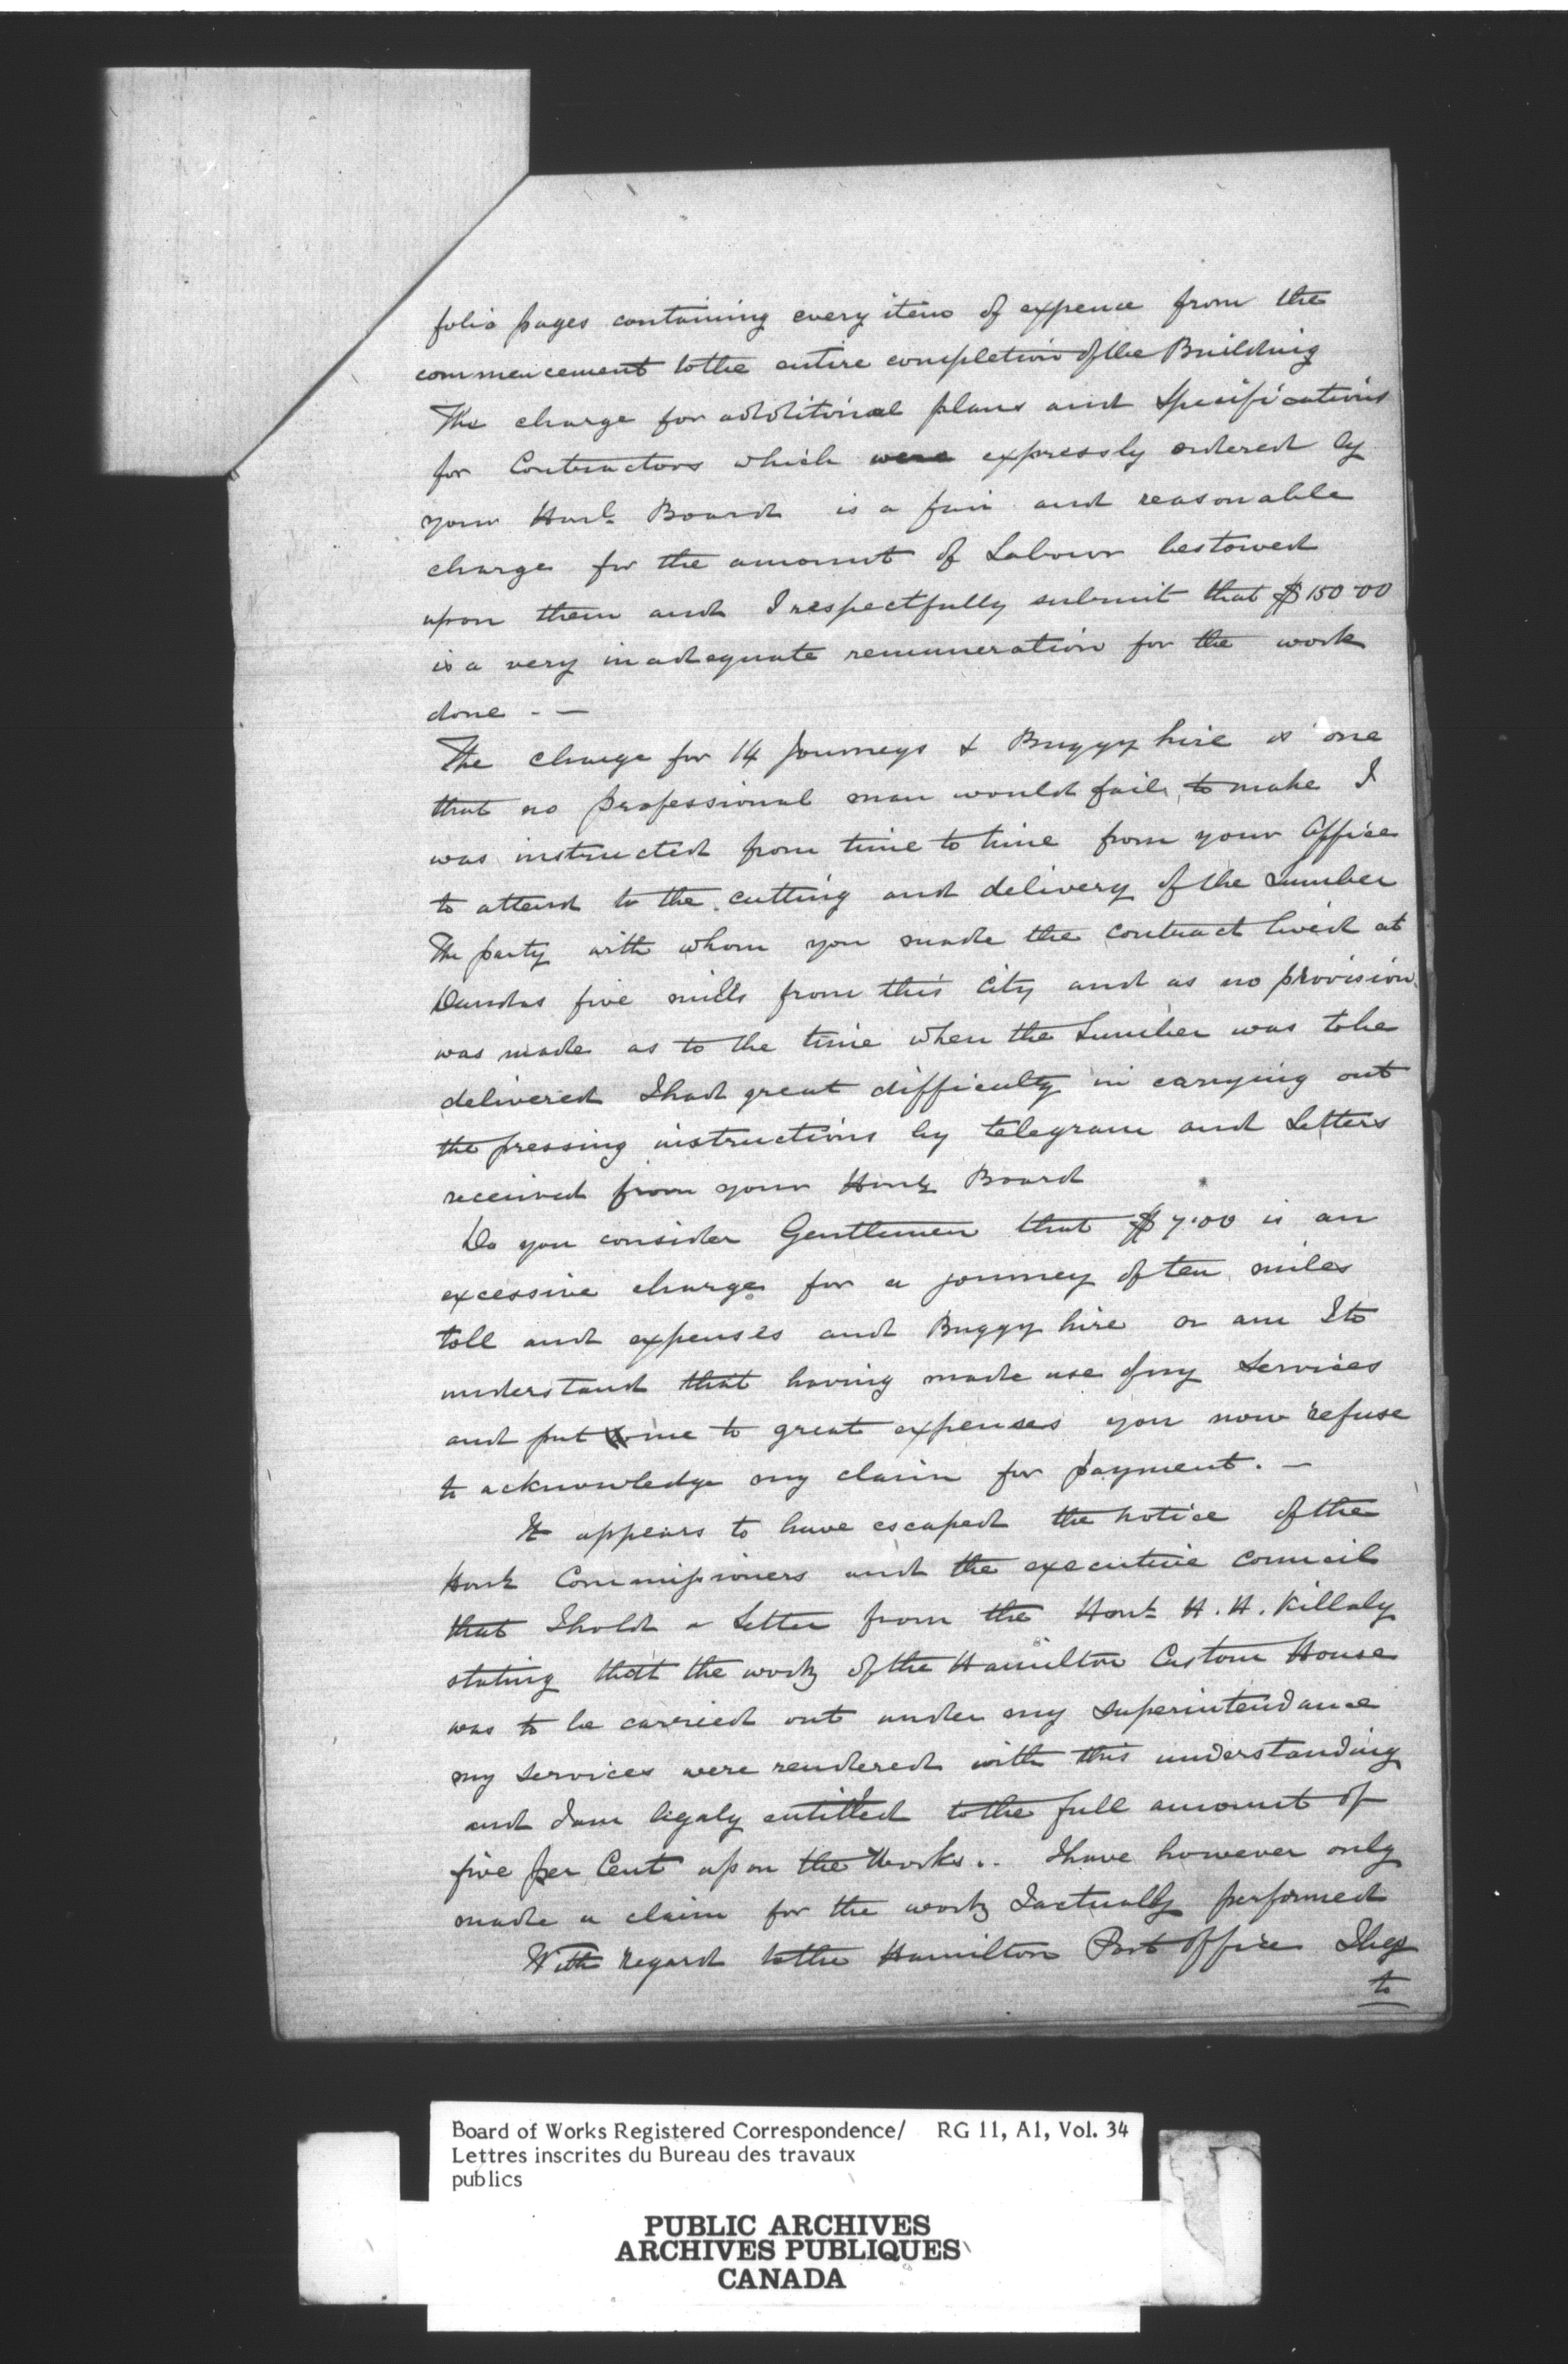 folio pages containing every item of expence from the
commencement to the entire completion of the Building
The charge for additional plans and Specifications
for Contractors which were expressly ordered by
your Honl. Board is a fair and reasonable
charge for the amount of Labour bestowed
upon them and I respectfully submit that $150.00
is a very inadequate remuneration for the work
done - —
The charge for 14 Journeys & Buggy hire is one
that no professional man would fail to make I
was instructed from time to time from your Office
to attend to the cutting and delivery of the Lumber
The party with whom you made the contract lived at
Dundas five mills from this City and as no provision
was made as to the time when the Lumber was to be
delivered I had great difficulty in carrying out
the pressing instructions by telegram and Letters
received from your Honl. Board
Do you consider Gentlemen that $7.00 is an
excessive charge for a journey of ten miles
toll and expenses and Buggy hire or am I to
understand that having made use of my Services
and put me to great expenses you now refuse
to acknowledge my claim for payment. —
It appears to have escaped the notice of the
Honl. Commissioners and the executive council
that I hold a Letter from the Honl. H. H. Killaly
stating that the work of the Hamilton Custom House
was to be carried out under my Superintendance
my Services were rendered with this understanding
and I am legaly entitled to the full amount of
five per Cent upon the Works.. I have however only
made a claim for the work I actually performed
With regard to the Hamilton Post Office I beg
to
Board of Works Registered Correspondence/ RG 11, A1, Vol. 34
Lettres inscrites du Bureau des travaux
publics
PUBLIC ARCHIVES
ARCHIVES PUBLIQUES
CANADA